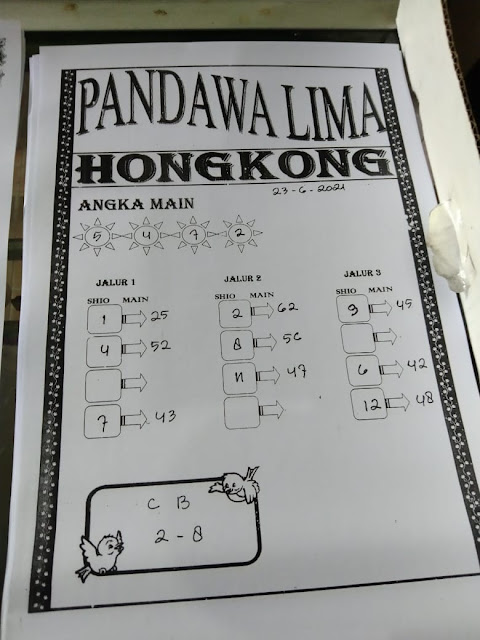 PANDAWA LIMA
HONGKONG
23-6-2021
ANGKA MAIN
5 4 7 2
JALUR 1
SHIO MAIN
1 25
4 52
7 43
JALUR 2
SHIO MAIN
2 62
8 56
11 47
JALUR 3
SHIO MAIN
9 45
6 42
12 48
C B
2 - 8